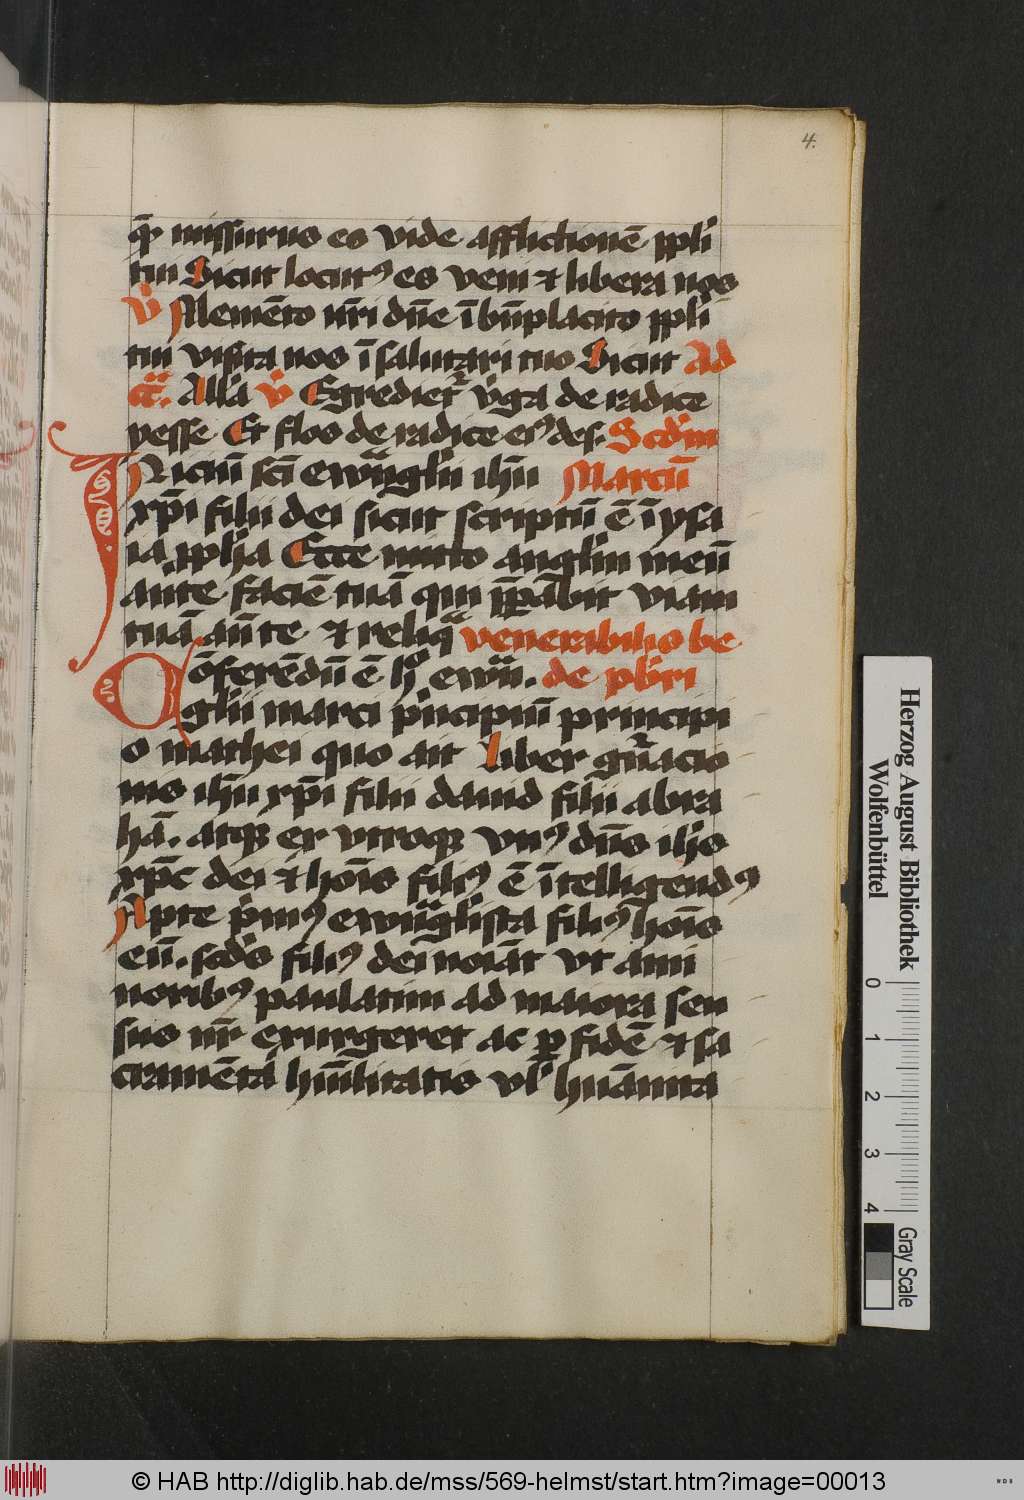 4.
qm̄ missurus es vide afflictionē ppl̄i
tui Sicut locutꝰ es veni ⁊ libera nos
v̄ Memēto nr̄i dn̄e ī bn̄placito ppl̄i
tui visita nos ī salutari tuo Sicut Ad
cā. All'a v̄ Egrediet᷑ v̄ga de radice
yesse Et flos de radice eiꝰ asc̄. Scdm̄
INiciū sc̄i ewāgl̄ii ih̄u Marcū
xp̄i filii dei sicut scriptū ē ī ysa
ia pph̄a Ecce mitto angl̄m meū
ante faciē tuā qui pp̄abit viam
tuā an̄ te ⁊ reliqᵃ venerabilis be
COnferēdū ē hᵒ ewā. de pb̄ri
gl̄ii marci p̄ncipiū principi
o mathei quo ait Liber gn̄acio
nis ih̄u xp̄i filii dauid filii abra
hā. atqꝫ ex vtroqꝫ vnꝰ dn̄s ih̄s
xp̄c dei ⁊ hoīs filiꝰ ē ītelligendꝰ
Apte p̄mꝰ ewāgl̄ista filiꝰ hoīs
eū. scds̄ filiꝰ dei noīat vt a mi
noribꝰ paulatim ad maiora sen
sus nr̄ exurgeret ac ꝑ fidē ⁊ sa
cramēta hūilitatis vl' hūanita
Herzog August Bibliothek
Wolfenbüttel
0 1 2 3 4
Gray Scale
© HAB http://diglib.hab.de/mss/569-helmst/start.htm?image=00013